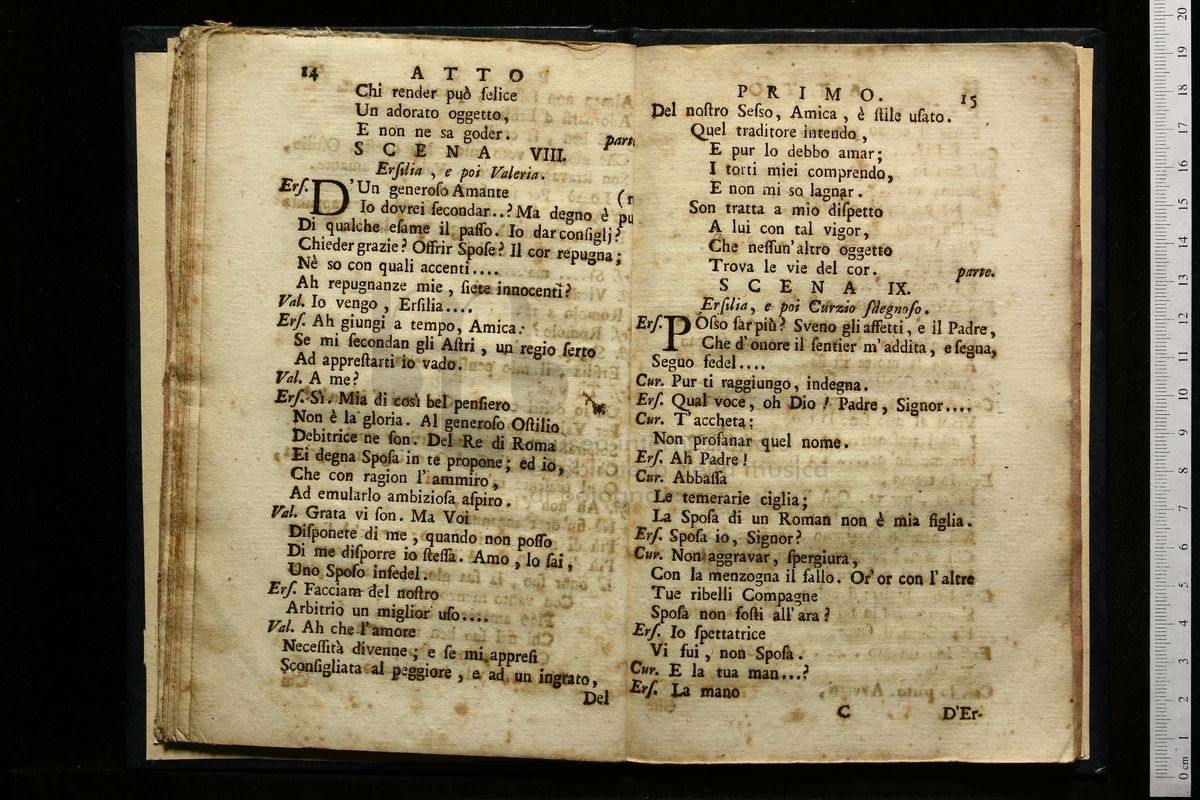 14 ATTO
Chi render può felice
Un adorato oggetto,
E non ne sa goder.
part
SCENA VIII.
Ersilia, e poi Valeria.
Ers. D'Un generoso Amante
Io dovrei secondar..? Ma degno è pu
Di qualche esame il passo. Io dar consiglj?
Chieder grazie? Offrir Spose? Il cor repugna;
Nè so con quali accenti....
Ah repugnanze mie, siete innocenti?
Val. Io vengo, Ersilia....
Ers. Ah giungi a tempo, Amica:
Se mi secondan gli Astri, un regio serto
Ad apprestarti io vado.
Val. A me?
Ers. Sì. Mia di così bel pensiero
Non è la gloria. Al generoso Ostilio
Debitrice ne son. Del Re di Roma
Ei degna Sposa in te propone; ed io,
Che con ragion l'ammiro,
Ad emularlo ambiziosa aspiro.
Val. Grata vi son. Ma Voi
Disponete di me, quando non posso
Di me disporre io stessa. Amo, lo sai,
Uno Sposo infedel.
Ers. Facciam del nostro
Arbitrio un miglior uso....
Val. Ah che l'amore
Necessità divenne; e se mi appresi
Sconsigliata al peggiore, e ad un ingrato,
Del
PRIMO. 15
Del nostro Sesso, Amica, è stile usato.
Quel traditore intendo,
E pur lo debbo amar;
I torti miei comprendo,
E non mi so lagnar.
Son tratta a mio dispetto
A lui con tal vigor,
Che nessun'altro oggetto
Trova le vie del cor.
parte.
SCENA IX.
Ersilia, e poi Curzio sdegnoso.
Ers. POsso far più? Sveno gli affetti, e il Padre,
Che d'onore il sentier m'addita, e segna,
Seguo fedel....
Cur. Pur ti raggiungo, indegna.
Ers. Qual voce, oh Dio! Padre, Signor....
Cur. T'accheta:
Non profanar quel nome.
Ers. Ah Padre!
Cur. Abbassa
Le temerarie ciglia;
La Sposa di un Roman non è mia figlia.
Ers. Sposa io, Signor?
Cur. Non aggravar, spergiura,
Con la menzogna il fallo. Or'or con l'altre
Tue ribelli Compagne
Sposa non fosti all'ara?
Ers. Io spettatrice
Vi fui, non Sposa.
Cur. E la tua man...?
Ers. La mano
C D'Er-